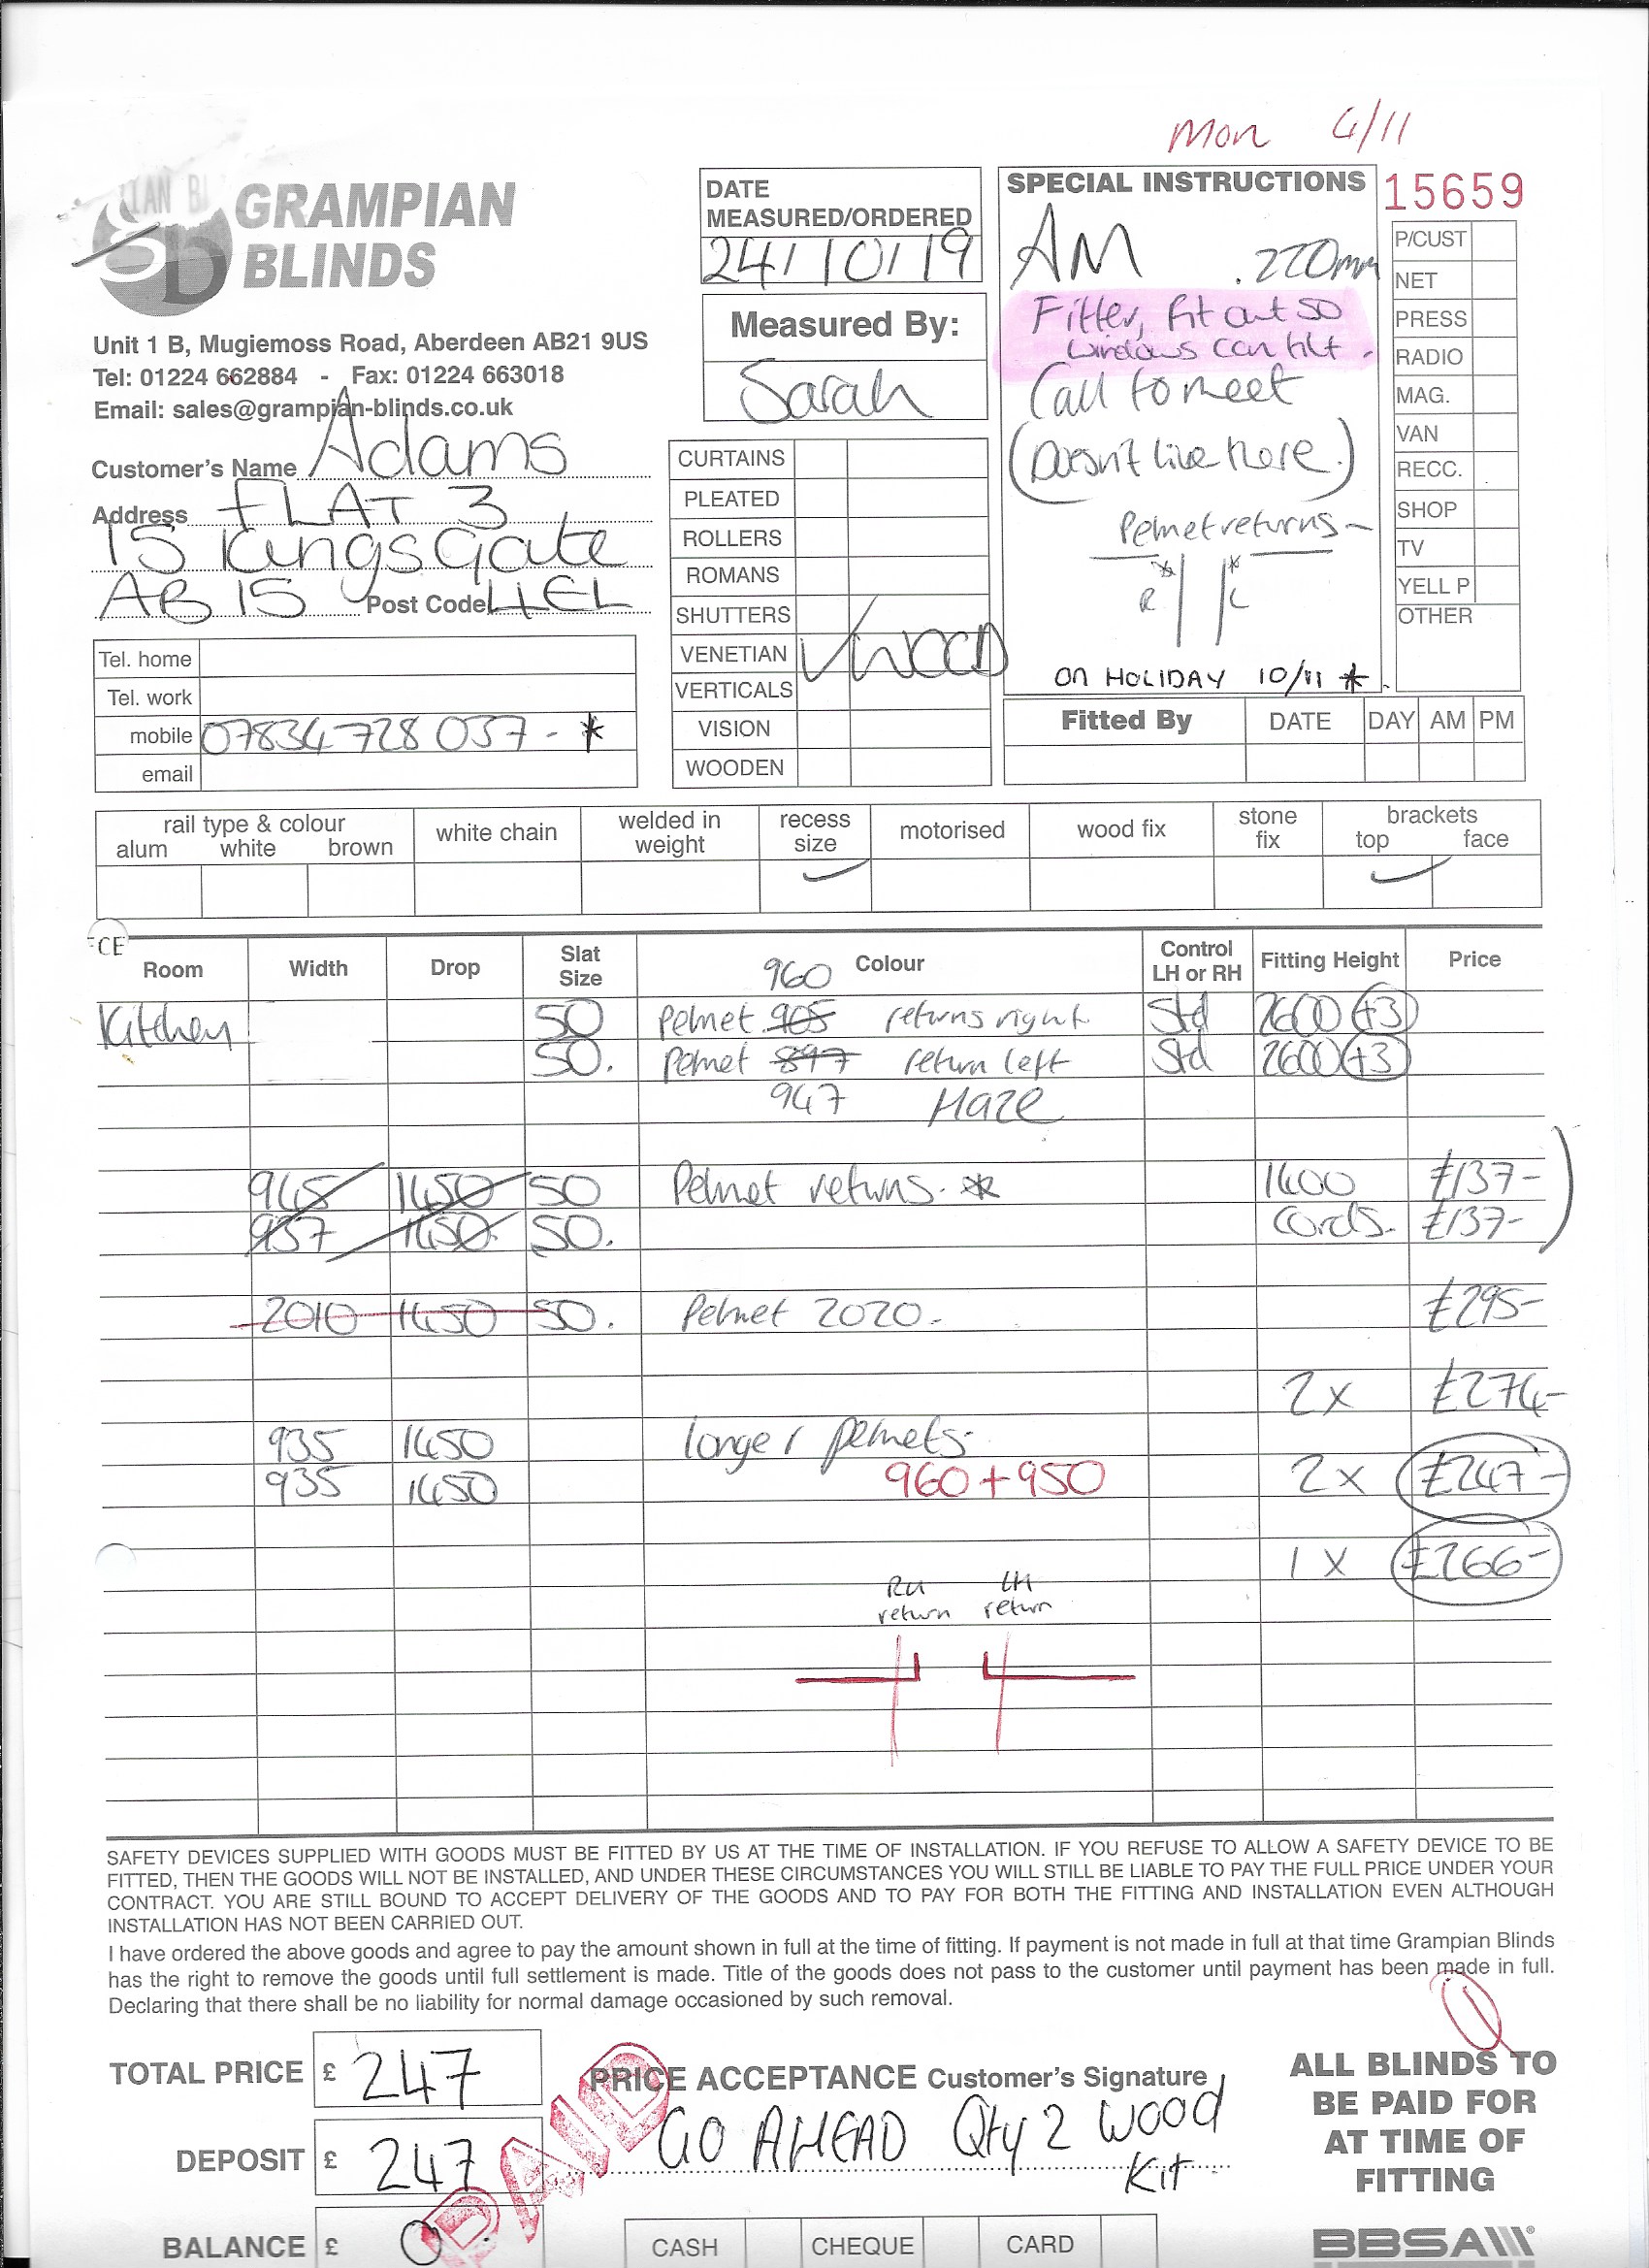 Mon 4/11
GRAMPIAN
BLINDS
Unit 1 B, Mugiemoss Road, Aberdeen AB21 9US
Tel: 01224 662884 - Fax: 01224 663018
Email: sales@grampian-blinds.co.uk
Customer's Name Adams
Address FLAT 3
15 Kings Gate
AB15 Post Code 4EL
Tel. home
Tel. work
mobile 07834 728 037 - *
email
DATE
MEASURED/ORDERED
24/10/19
Measured By:
Sarah
CURTAINS
PLEATED
ROLLERS
ROMANS
SHUTTERS
VENETIAN ✓ WOOD
VERTICALS
VISION
WOODEN
SPECIAL INSTRUCTIONS
AM .220mm
Fitter, fit out so
windows can tilt.
Call to meet
(Doesn't live here.)
Pelmet returns -
* *
R L
ON HOLIDAY 10/11 *.
15659
P/CUST
NET
PRESS
RADIO
MAG.
VAN
RECC.
SHOP
TV
YELL P
OTHER
Fitted By DATE DAY AM PM
rail type & colour
alum white brown
white chain
welded in
weight
recess
size
✓
motorised
wood fix
stone
fix
brackets
top face
✓
Room Width Drop Slat Size Colour Control LH or RH Fitting Height Price
960
Kitchen 50 Pelmet 905 returns right Std 2600 +3
50. Pelmet 897 return left Std 2600 +3
947 Haze
945 1450 50 Pelmet returns. * 1400 £137-
937 1450 50. Cords. £137-
2010 1450 50. Pelmet 2020. £295-
2x £274-
935 1450 longer pelmets.
935 1450 960 + 950 2x £247-
1x £266-
RH LH
return return
SAFETY DEVICES SUPPLIED WITH GOODS MUST BE FITTED BY US AT THE TIME OF INSTALLATION. IF YOU REFUSE TO ALLOW A SAFETY DEVICE TO BE
FITTED, THEN THE GOODS WILL NOT BE INSTALLED, AND UNDER THESE CIRCUMSTANCES YOU WILL STILL BE LIABLE TO PAY THE FULL PRICE UNDER YOUR
CONTRACT. YOU ARE STILL BOUND TO ACCEPT DELIVERY OF THE GOODS AND TO PAY FOR BOTH THE FITTING AND INSTALLATION EVEN ALTHOUGH
INSTALLATION HAS NOT BEEN CARRIED OUT.
I have ordered the above goods and agree to pay the amount shown in full at the time of fitting. If payment is not made in full at that time Grampian Blinds
has the right to remove the goods until full settlement is made. Title of the goods does not pass to the customer until payment has been made in full.
Declaring that there shall be no liability for normal damage occasioned by such removal.
TOTAL PRICE £ 247
DEPOSIT £ 247
BALANCE £ 0
PAID
PRICE ACCEPTANCE Customer's Signature
GO AHEAD Qty 2 Wood
Kit
CASH CHEQUE CARD
ALL BLINDS TO
BE PAID FOR
AT TIME OF
FITTING
BBSA